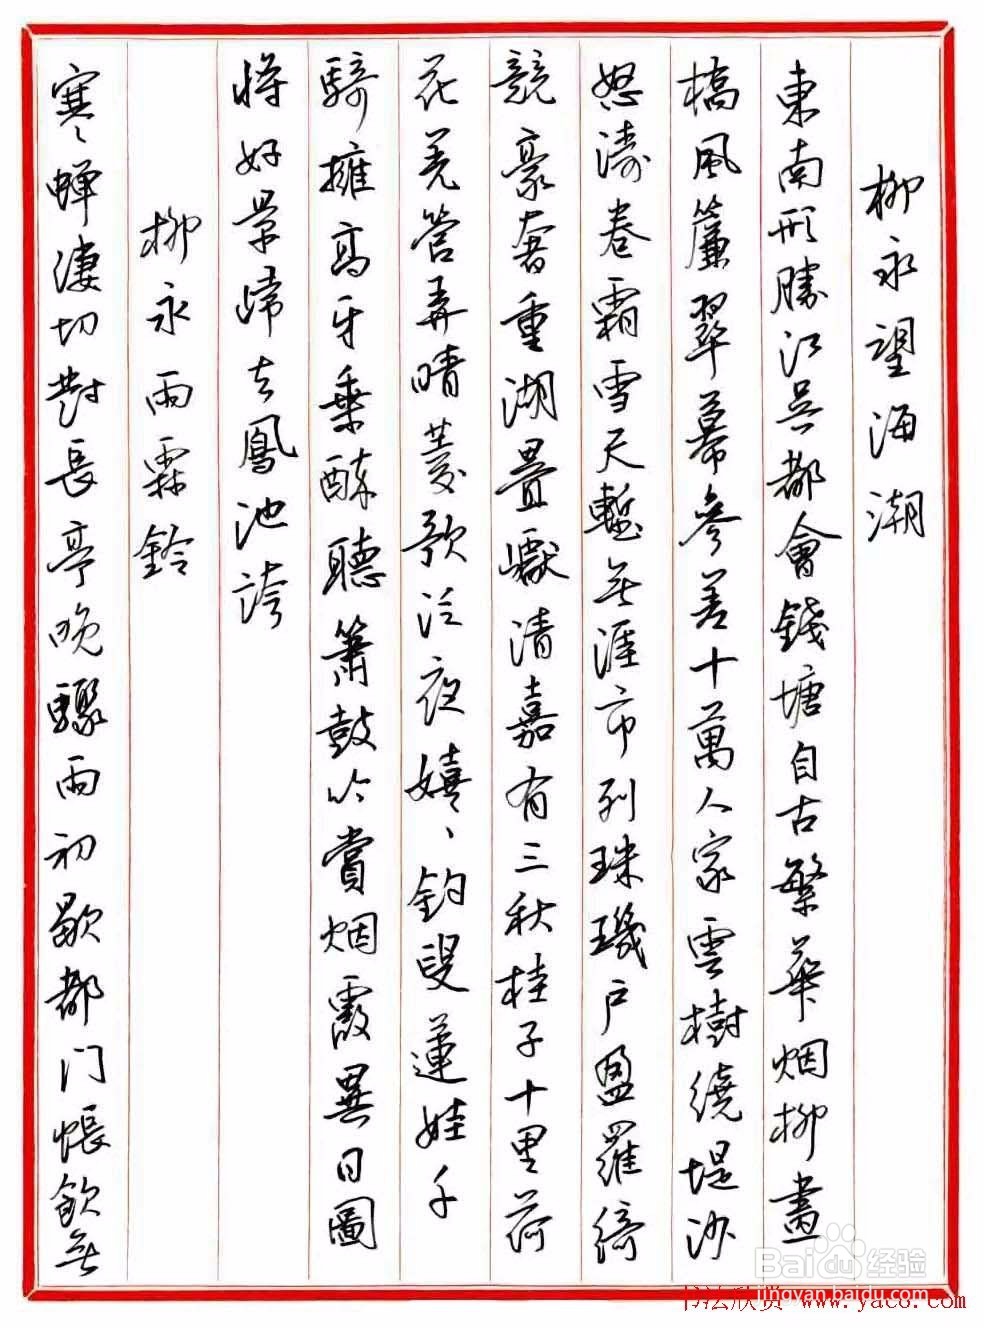 柳永望海潮
東南形勝江吳都會錢塘自古繁華烟柳畫
橋風簾翠幕參差十萬人家雲樹繞堤沙
怒濤卷霜雪天塹無涯市列珠璣戶盈羅綺
競豪奢重湖疊巘清嘉有三秋桂子十里荷
花羌管弄晴菱歌泛夜嬉嬉釣叟蓮娃千
騎擁高牙乘醉聽簫鼓吟賞烟霞異日圖
將好景歸去鳳池誇
柳永雨霖鈴
寒蟬淒切對長亭晚驟雨初歇都门帳飲無
Baidu经验
jingyan.baidu.com
书法欣赏 www.yac8.com